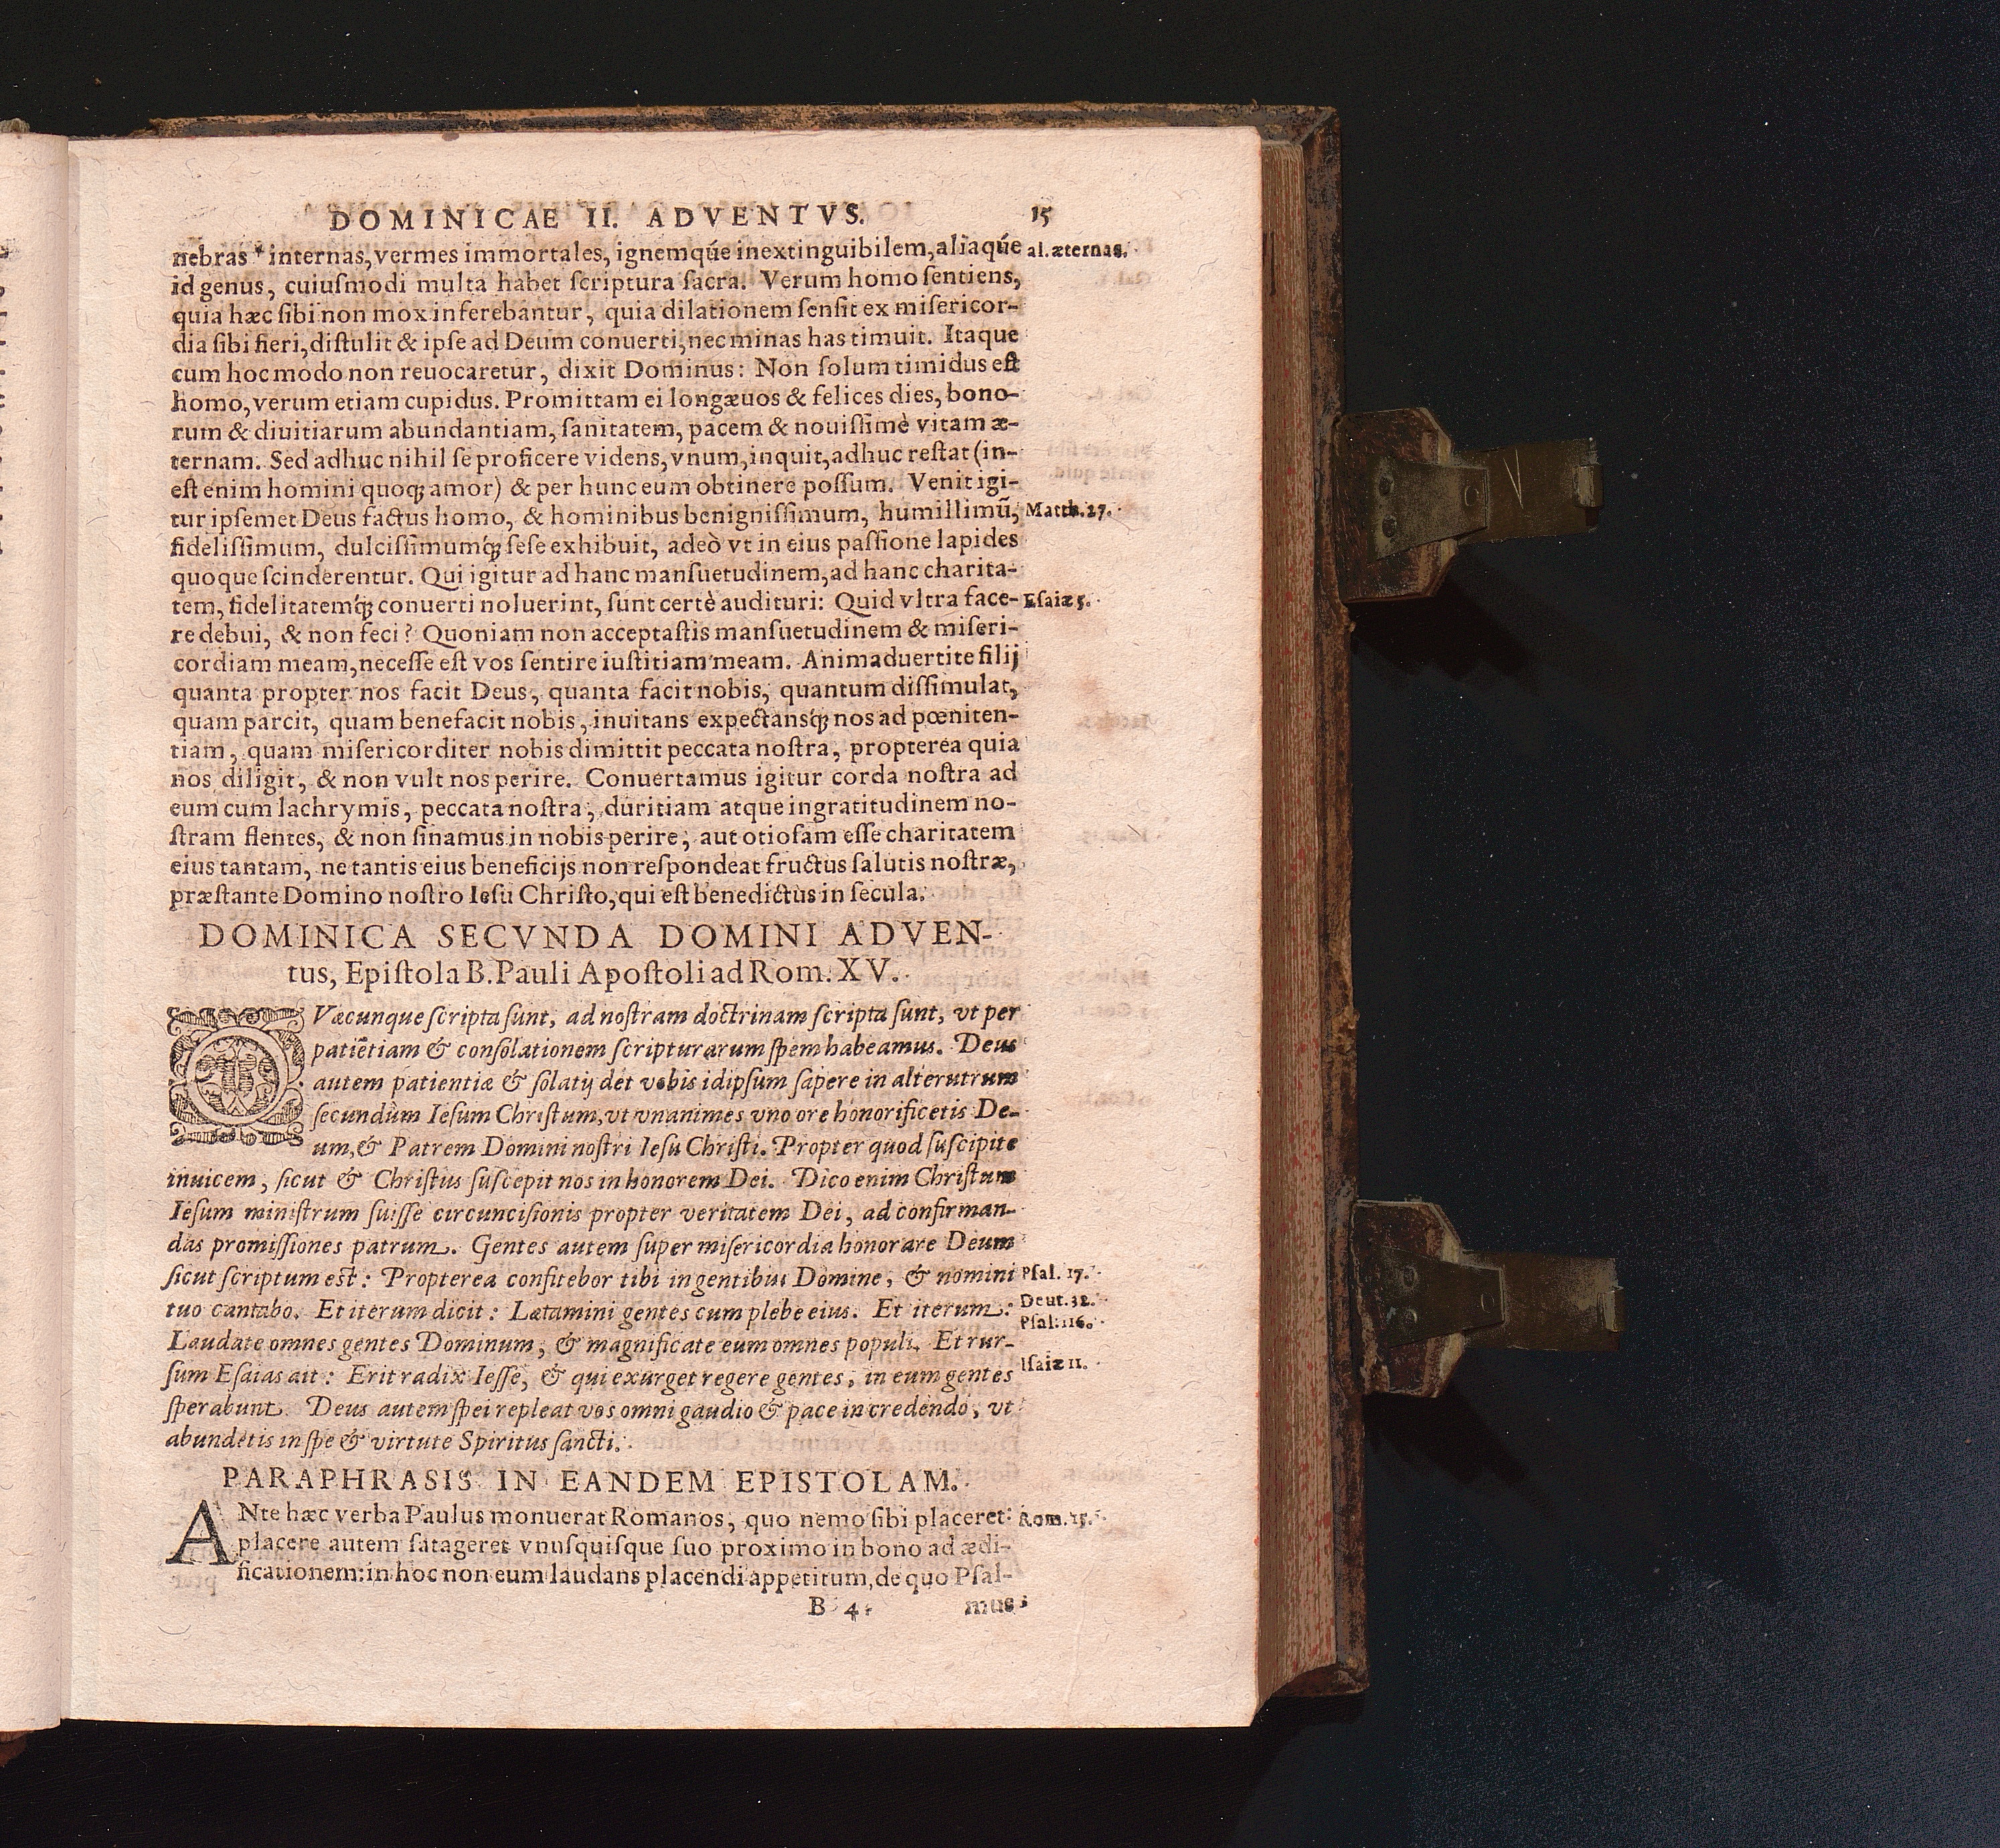 DOMINICAE II. ADVENTVS. 15
nebras * internas, vermes immortales, ignemq́ue inextinguibilem, aliaq́ue al. æternas.
id genus, cuiuſmodi multa habet ſcriptura ſacra. Verum homo ſentiens,
quia hæc ſibi non mox inferebantur, quia dilationem ſenſit ex miſericor-
dia ſibi fieri, diſtulit & ipſe ad Deum conuerti, nec minas has timuit. Itaque
cum hoc modo non reuocaretur, dixit Dominus: Non ſolum timidus eſt
homo, verum etiam cupidus. Promittam ei longæuos & felices dies, bono-
rum & diuitiarum abundantiam, ſanitatem, pacem & nouiſſimè vitam æ-
ternam. Sed adhuc nihil ſe proficere videns, vnum, inquit, adhuc reſtat (in-
eſt enim homini quoq; amor) & per hunc eum obtinere poſſum. Venit igi-
tur ipſemet Deus factus homo, & hominibus benigniſſimum, humillimũ, Matth. 27.
fideliſſimum, dulciſſimumq́; ſeſe exhibuit, adeò vt in eius paſſione lapides
quoque ſcinderentur. Qui igitur ad hanc manſuetudinem, ad hanc charita-
tem, fidelitatemq́; conuerti noluerint, ſunt certè audituri: Quid vltra face- Eſaiæ 5.
re debui, & non feci? Quoniam non acceptaſtis manſuetudinem & miſeri-
cordiam meam, neceſſe eſt vos ſentire iuſtitiam meam. Animaduertite filij
quanta propter nos facit Deus, quanta facit nobis, quantum diſſimulat,
quam parcit, quam benefacit nobis, inuitans expectansq́; nos ad pœniten-
tiam, quam miſericorditer nobis dimittit peccata noſtra, propterea quia
nos diligit, & non vult nos perire. Conuertamus igitur corda noſtra ad
eum cum lachrymis, peccata noſtra, duritiam atque ingratitudinem no-
ſtram flentes, & non ſinamus in nobis perire, aut otioſam eſſe charitatem
eius tantam, ne tantis eius beneficijs non reſpondeat fructus ſalutis noſtræ,
præſtante Domino noſtro Ieſu Chriſto, qui eſt benedictus in ſecula.
DOMINICA SECVNDA DOMINI ADVEN-
tus, Epiſtola B. Pauli Apoſtoli ad Rom. XV.
QVæcunque ſcripta ſunt, ad noſtram doctrinam ſcripta ſunt, vt per
patiẽtiam & conſolationem ſcripturarum ſpem habeamus. Deus
autem patientiæ & ſolatij det vobis idipſum ſapere in alterutrum
ſecundùm Ieſum Chriſtum, vt vnanimes vno ore honorificetis De-
um, & Patrem Domini noſtri Ieſu Chriſti. Propter quod ſuſcipite
inuicem, ſicut & Chriſtus ſuſcepit nos in honorem Dei. Dico enim Chriſtum
Ieſum miniſtrum fuiſſe circunciſionis propter veritatem Dei, ad confirman-
das promiſſiones patrum. Gentes autem ſuper miſericordia honorare Deum
ſicut ſcriptum eſt: Propterea confitebor tibi in gentibus Domine, & nomini Pſal. 17.
tuo cantabo. Et iterum dicit: Lætamini gentes cum plebe eius. Et iterum: Deut. 32.
Pſal. 116.
Laudate omnes gentes Dominum, & magnificate eum omnes populi. Et rur-
ſum Eſaias ait: Erit radix Ieſſe, & qui exurget regere gentes, in eum gentes Iſaiæ 11.
ſperabunt. Deus autem ſpei repleat vos omni gaudio & pace in credendo, vt
abundetis in ſpe & virtute Spiritus ſancti.
PARAPHRASIS IN EANDEM EPISTOLAM.
ANte hæc verba Paulus monuerat Romanos, quo nemo ſibi placeret: Rom. 15.
placere autem ſatageret vnuſquiſque ſuo proximo in bono ad ædi-
ficationem: in hoc non eum laudans placendi appetitum, de quo Pſal-
B 4 mus